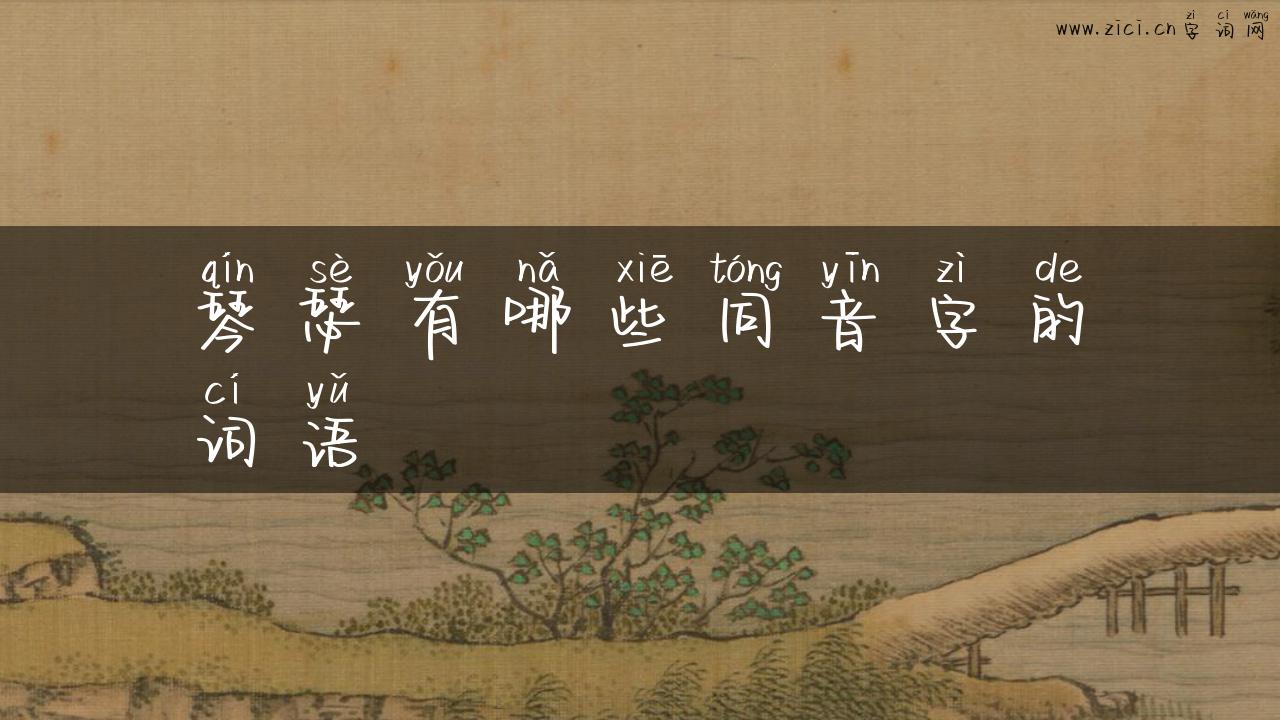 zì cí wǎng
www.zici.cn 字词网
qín sè yǒu nǎ xiē tóng yīn zì de
琴瑟有哪些同音字的
cí yǔ
词语